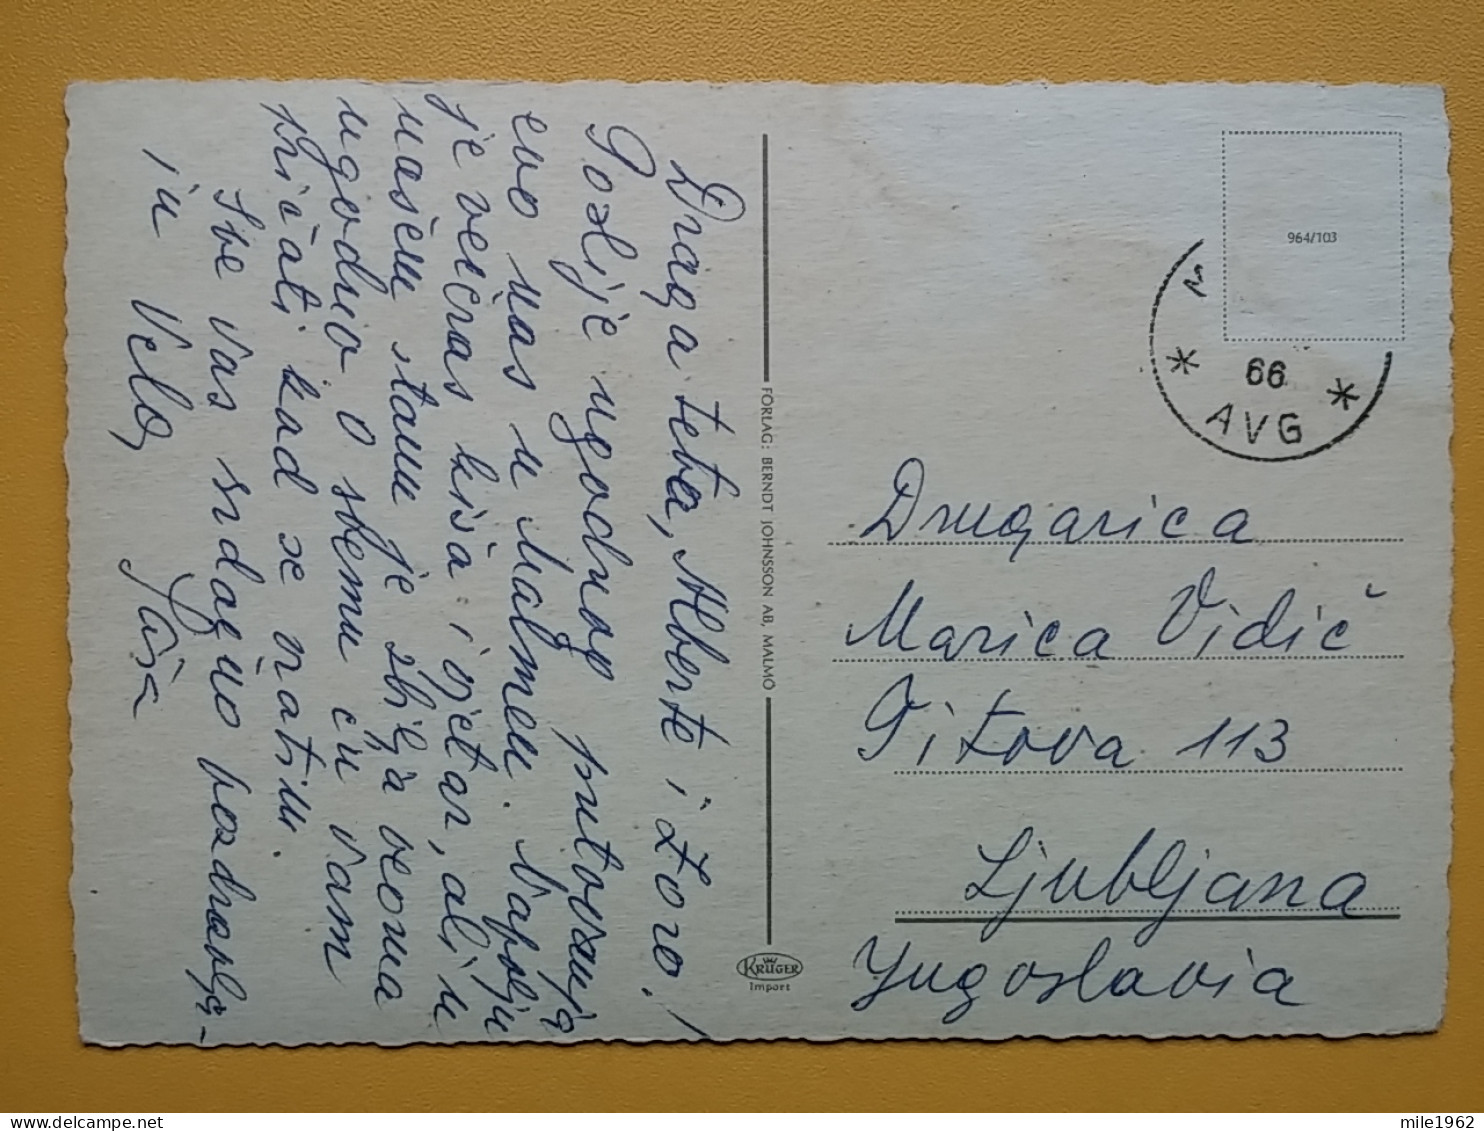 Draga teta, Alberte i Zoro!
Poslije ugodnog putovanja
evo nas u Malmeu. Napolju
je večras kiša i vjetar, ali u
našem stanu je zbilja veoma
ugodno. O svemu ću vam
pričati kad se vratim.
Sve Vas srdačno pozdravlja-
ju Vela Saša
FÖRLAG: BERNDT JOHNSSON AB, MALMÖ
KRÜGER
Import
964/103
66
AVG
Drugarica
Marica Vidič
Titova 113
Ljubljana
Yugoslavia
mile1962